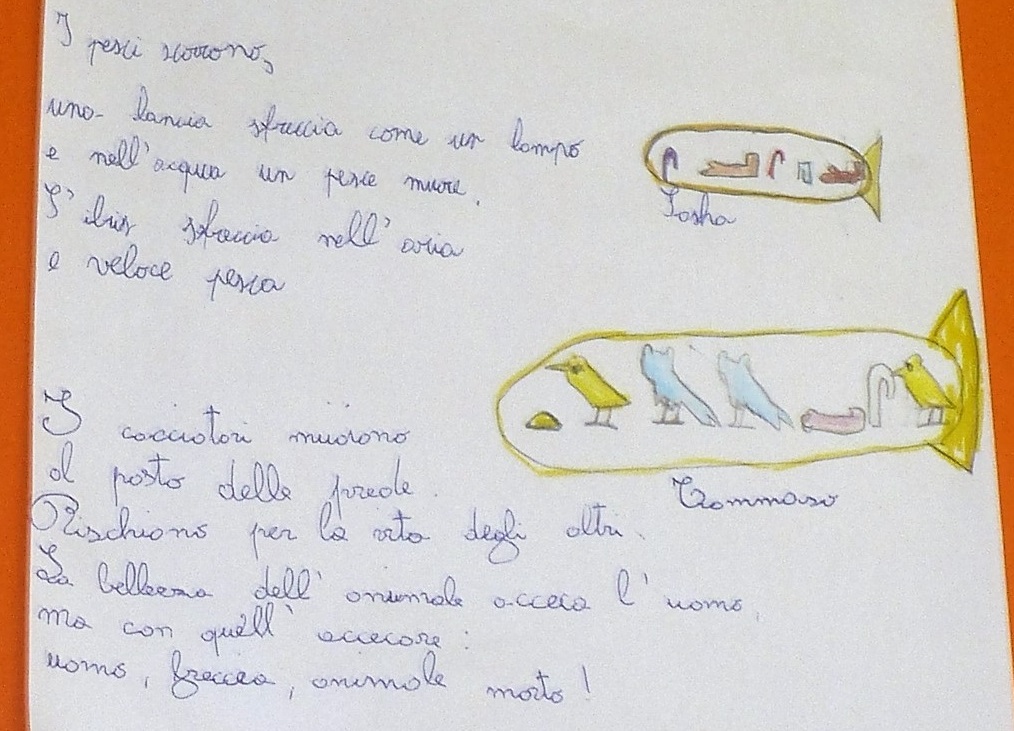 I pesci scorrono,
una lancia sfreccia come un lampo
e nell'acqua un pesce muore.
L'ibis sfreccia nell'aria
e veloce pesca
Sasha
I cacciatori muoiono
al posto delle prede.
Tommaso
Rischiano per la vita degli altri.
La bellezza dell'animale acceca l'uomo,
ma con quell'accecare:
uomo, freccia, animale morto!